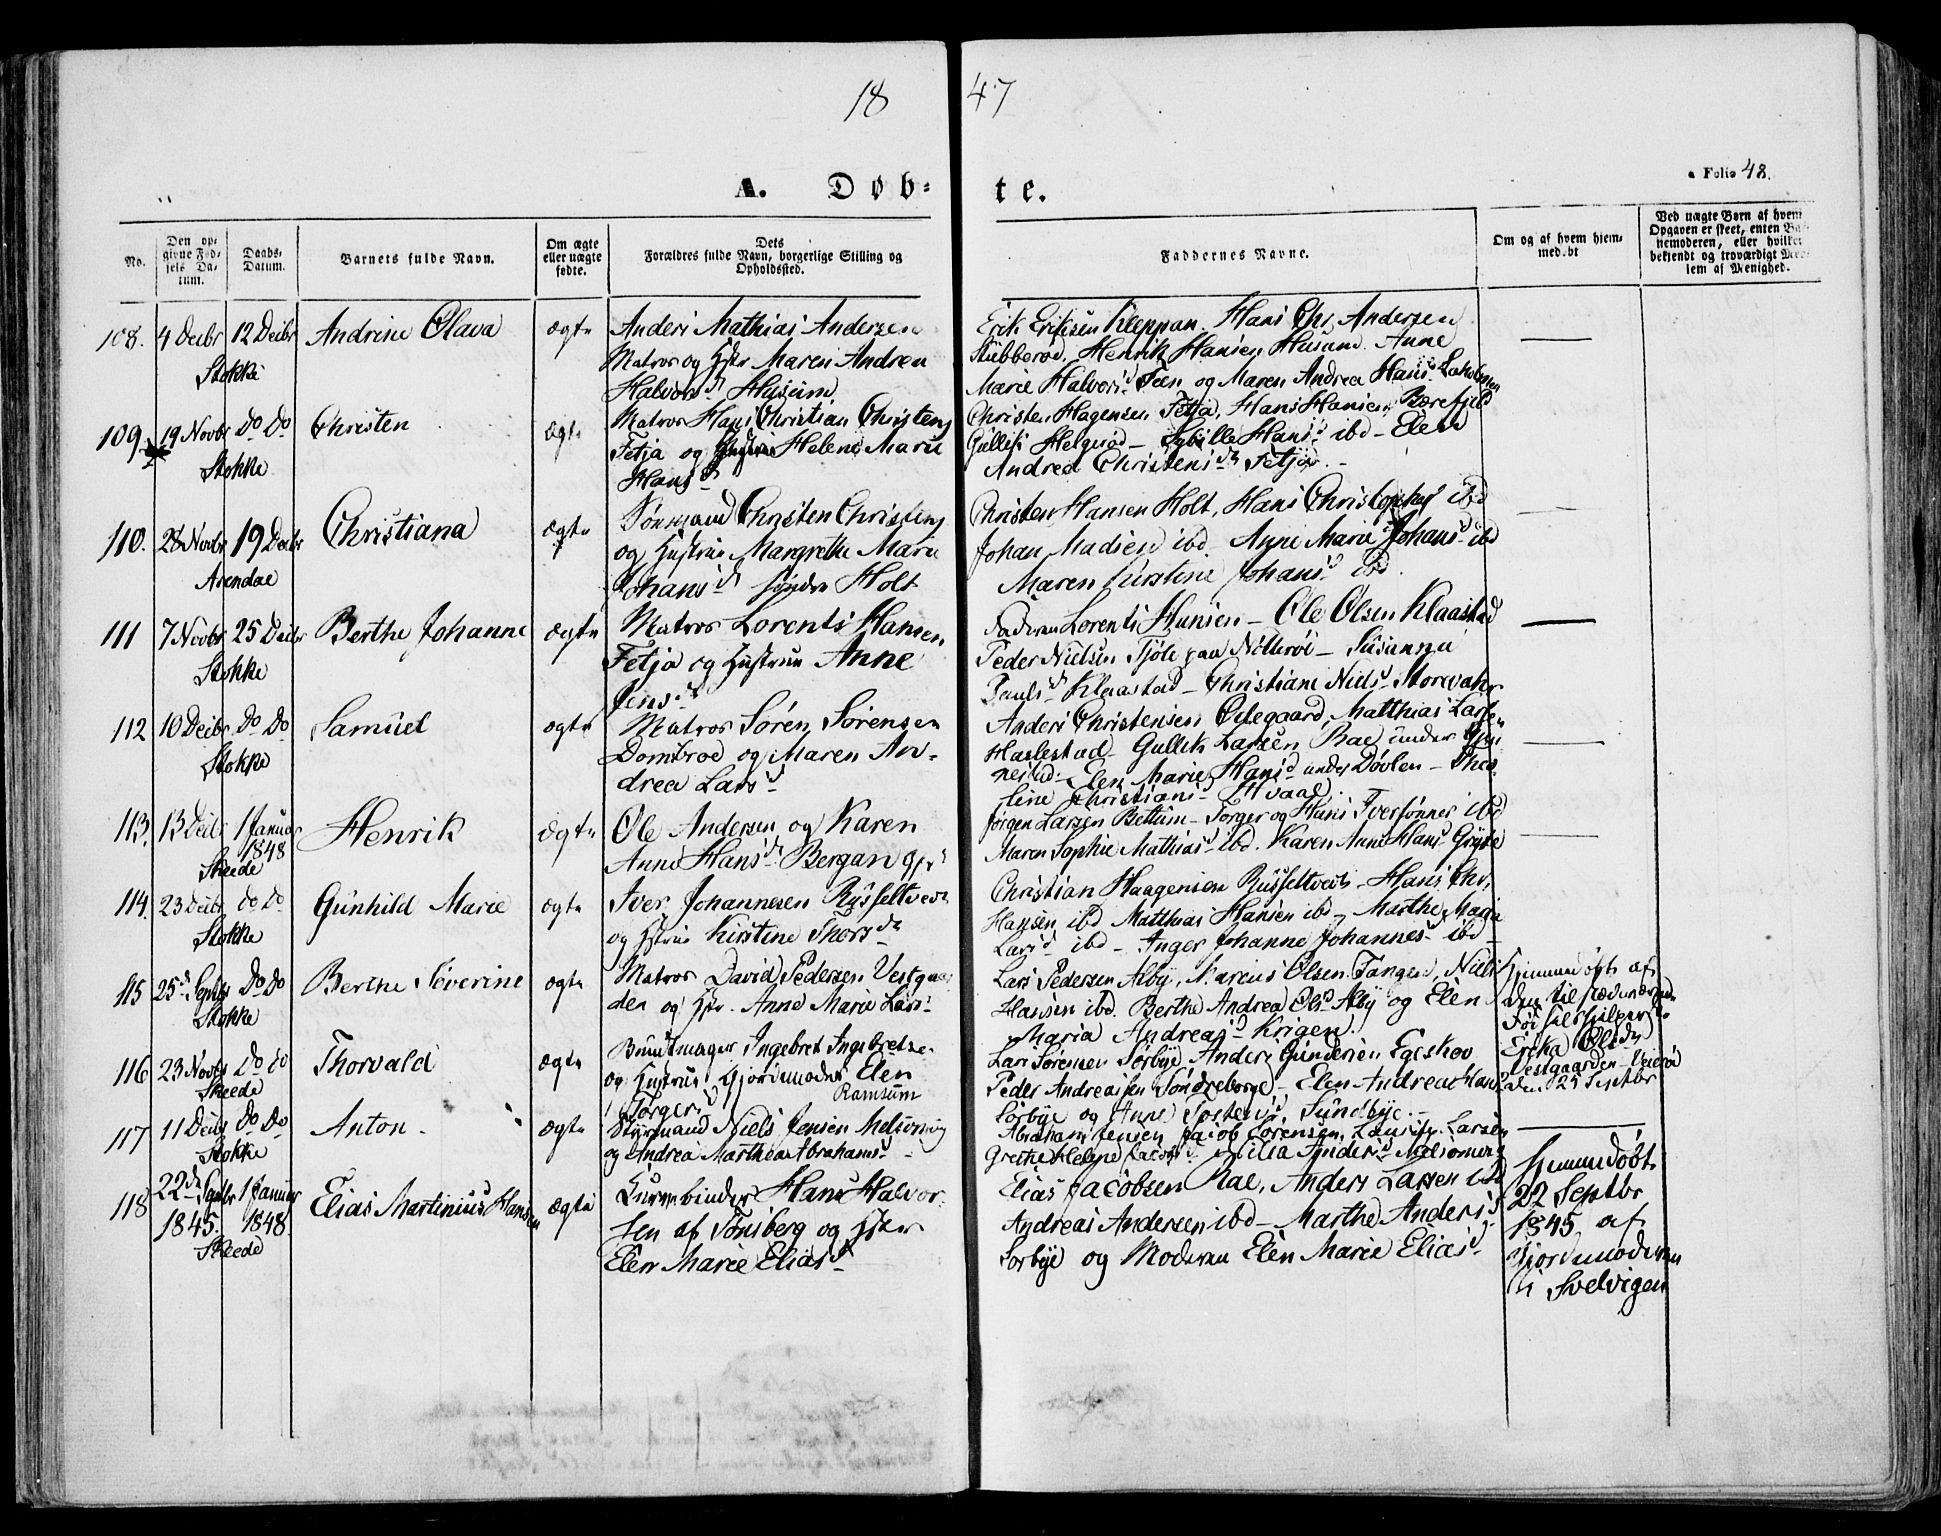 18 47
A. Døb- te.
Folio 48.
No.
Den opgivne Fødsels Datum.
Daabs-Datum.
Barnets fulde Navn.
Om ægte eller uægte fødte.
Dets Forældres fulde Navn, borgerlige Stilling og Opholdssted.
Faddernes Navne.
Om og af hvem hjemmedøbt
Ved uægte Børn af hvem Opgaven er skeet, enten Barnemoderen, eller hvilket bekjendt og troværdigt Medlem af Menighed.
108. 4 Decbr 12 Decbr Andrine Olava ægte Anders Mathias Andersen
Stokke
Matros og Hstr Maren Andrea
Halvorsd Husum
Erik Eriksen Kleppan. Hans Chr. Andersen
Stubberød, Henrik Hansen Husum. Anne
Marie Halvorsd Feen og Maren Andrea Hansd
109. 19 Novbr Do Do Christen ægte Matros Hans Christian Christens
Stokke
Fetja og Hustru Helene Marie
Hansd
Christen Hagensen Fetja, Hans Hansen
Gullik Helgerød - Sybille Hansd ibd - Elen
Andrea Christensdr Fetja. -
110. 28 Novbr 19 Decbr Christiana ægte Sømand Christen Christens
Arendal
og Hustru Margrethe Marie
Johansd søndre Holt
Christen Hansen Holt, Hans Christophers ibd
Johan Madsen ibd. Anne Marie Johansd ibd
Maren Kirstine Johansd ibd.
111 7 Novbr 25 Decbr Berthe Johanne ægte Matros Lorents Hansen
Stokke
Fetja og Hustru Anne
Jensd
Faderen Lorents Hansen - Ole Olsen Klaastad
Peder Nielsen Tjøle paa Nøtterøe - Susanne
Paulsd Klaastad - Christiane Nielsd Storevahr
112 10 Decbr Do Do Samuel ægte Matros Søren Sørensen
Stokke
Dombrod og Maren An-
drea Larsd
Anders Christensen Ødegaard, Matthias Larsen
Haslestad - Gullik Larsen Rae under
Elen Marie Hansd under Døvlen - Theo
line Christiansd Hvaal.
113. 13 Decbr 1 Januar 1848 Henrik ægte Ole Andersen og Karen
Skeede
Anne Hansd Bergan
Jørgen Larsen Bettum - Torger og Hans Iversønner ibd
Maren Sophie Mathiasd ibd. Karen Anne Hansd
114. 23 Decbr do Do Gunhild Marie ægte Iver Johannesen Russeltvedt
Stokke
og Hstru Kirstine Thorsdr
Christian Haagensen Russeltvedt - Hans Chr.
Hansen ibd Matthias Hansen ibd - Marthe Maria
Larsd ibd - Inger Johanne Johannesd ibd -
115 25d Septbr Do Do Berthe Severine ægte Matros David Pedersen Vestgaar-
Stokke
den og Hstr. Anne Marie Larsd
Lars Pedersen Alby, Marcus Olsen Tangen, Niels
Hansen ibd. Berthe Andrea Olsd Alby og Elen
Maria Andreasd Krigen.
Hjemmedøbt af
Ericka Olsd
Vestgaarden
den 25 Septbr
116 23 Novbr Do do Thorvald ægte Buntmager Ingebret Ingebretse
Skeede
og Hustru, Gjordemoder Elen
Torgersd Ramsum
Lars Sørensen Sørbye, Anders Gundersen Egeskov
Peder Andreassen Søndreborge - Elen Andrea Hansd
Sørbye og Anne Sundbye. -
117 11 Decbr Do Do Anton. ægte Styrmand Niels Jensen Melsomvig
Stokke
og Andrea Marthea Abrahamsd
Abraham Jensen Jacob Sørensen, Larsen
Grethe Helene Jacobsd. Andersd Melsomvig
118 22de Septbr 1845. 1 Januar 1848. Elias Martinius Hansen ægte Kurvebinder Hans Halvor-
Skeede
sen af Tønsberg og Hstr
Elen Marie Eliasd
Elias Jacobsen Rae, Anders Larsen ibd
Andreas Andersen ibd - Marthe Andersd
Sørbye og Moderen Elen Marie Eliasd
Hjemmedøbt
22 Septbr
1845 af
Gjordemoderen
i Svelvigen